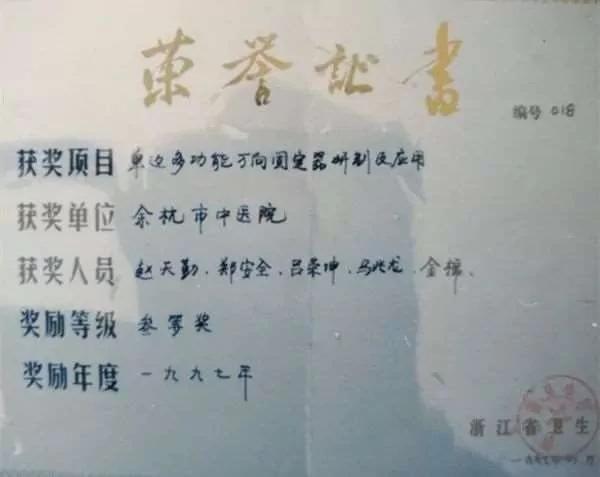 荣誉证书
编号 018
获奖项目 单边多功能万向固定器研制及应用
获奖单位 余杭市中医院
获奖人员 赵天勤、郑安全、吕荣坤、马兆龙、金锦、
奖励等级 叁等奖
奖励年度 一九九七年
浙江省卫生